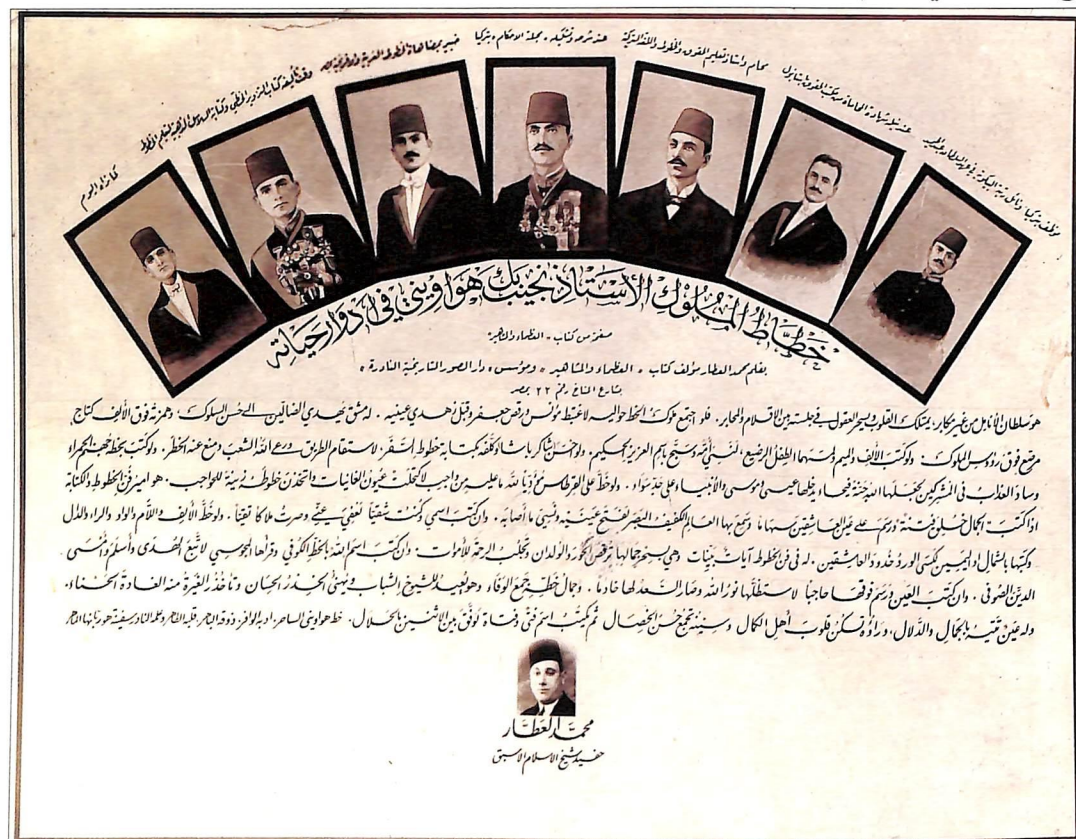 موظف بتركيا ونائل رتبة البكوية في عهد السلطان عبد الحميد
عند نيله شهادة المحاماة من مكتب الحقوق باستانبول
محام واستاذ تعليم الحقوق والخطوط واللغة التركية
عند شرحه وتشكيله ، مجلة الاحكام ، بتركيا
خبير بمضاهاة الخطوط العربية والافرنجية بمصر
وقت تأليفه كتاب التزوير الخطي وكتابة السلاسل الذهبية لتعليم الخطوط
كما تراه اليوم
خطاط الملوك الأستاذ نجيب بك هواويني في أدوار حياته
صفحة من كتاب - العظماء والمشاهير
بقلم محمد العطار مؤلف كتاب ، العظماء والمشاهير ، ومؤسس ، دار الصور التاريخية النادرة ،
بشارع المناخ رقم ٢٢ بمصر
هو سلطان الأنامل من غير مكابر، يمتلك القلوب ويسحر العقول في جلسته بين الاقلام والمحابر. فلو اجتمع ملوك الخط حواليه لاغتبط مؤنس ورقص جعفر وقبل زهدي عينيه. له مشق يهدي الضالين الى حسن السلوك. وهمزته فوق الألف كتاج
مرصع فوق رؤوس الملوك. ولو كتب الألف والميم ولمسهما الطفل الرضيع، لنسي أمه وسبح باسم العزيز الحكيم. ولو أحسن شاكر باشا وكلفه بكتابة خطوط السفر لاستقام الطريق ورعى الله الشعب ومنع عنه الخطر. ولو كتب بخطه جهنم الحمراء
وساد العذاب في المشركين لجعلها الله جنة فيحاء يدخلها عيسى وموسى والأنبياء وعلى خده سواد. ولو خط على القرطاس مؤديا لله ما عليه من واجب لاكتحلت عيون الغانيات واتخذن خطوطه زينة للحواجب. هو أمير فن الخطوط والكتابة
اذا كتب الجمال خلته فتنة ورسم على عين العاشقين سهامها وسمع بها العالم الكفيف البصير لفتح عينيه ونسي ما أصابه. وان كتب اسمي وكنت شقيا لعفي عني وصرت ملاكا نقيا. ولو خط الألف واللام والواو والراء والدال
وكتبها بالشمال او اليمين لكسى الورد خدود العاشقين. له في فن الخطوط آيات بينات وهي بسحر جمالها ترقص الحور والولدان وتجلب الرحمة للأموات. وان كتب اسم الله بالخط الكوفي وقرأها المجوسي لاتبع الهدى وأسلم وأمسى
الدين الصوفي. وان كتب العين ورسم فوقها حاجبا لاستظلها نور الله وصار السعد لها خادما. وجمال خطه جمع الوفاء وهو يعيد للشيوخ الشباب وينسى الخدر الحسان وتأخذ الغيرة منه الغادة الحسناء.
وله عين تتيه بالجمال والدلال، وراؤه تسكن قلوب أهل الكمال وسينه تجمع حسن الخصال ثم يكتب اسم فتى وفتاة لوفق بين الاثنين بالحلال. خط هواويني الساحر، ادبه الوافر، ذوقه الباهر، قلبه الطاهر وعلمه النادر سفينة هو ربانها الماهر
محمد العطار
حفيد شيخ الاسلام الاسبق